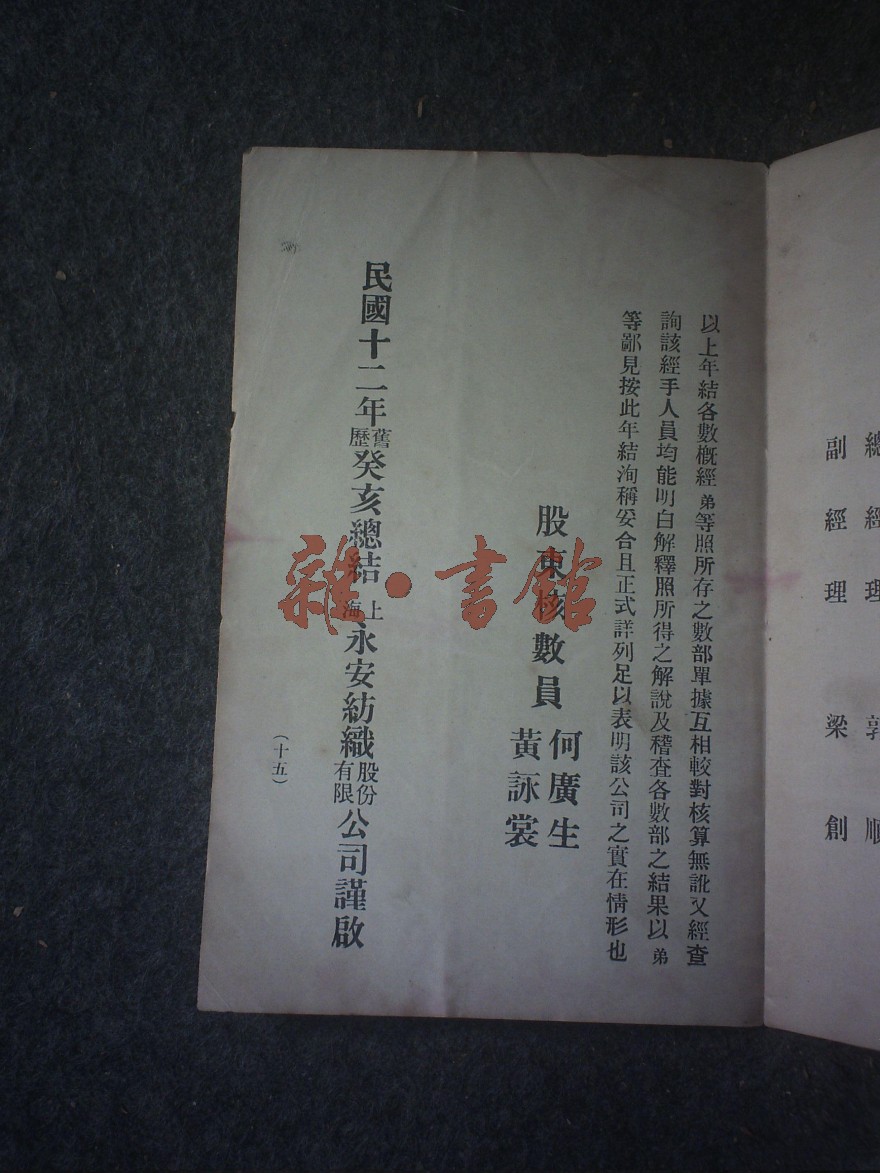 總經理 郭順
副經理 梁創
以上年結各數概經弟等照所存之數部單據互相較對核算無訛又經查
詢該經手人員均能明白解釋照所得之解說及稽查各數部之結果以弟
等鄙見按此年結洵稱妥合且正式詳列足以表明該公司之實在情形也
股東核數員 何廣生
黃詠裳
民國十二年舊歷癸亥總結上海永安紡織股份有限公司謹啟
（十五）
雜·書館